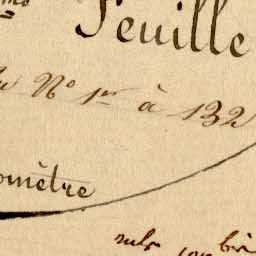 Feuille
Nº 1er à 132
omètre
bis